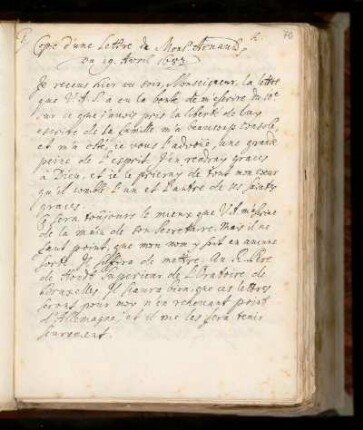 70
Copie d'une Lettre de Mons.r Arnauld,
du 19. Avril 1683
Je receus hier au soir, Monseigneur, la lettre
que V. A. S. a eu la bonté de m'escrire du
sur ce que j'avois pris la liberté de luy
escrire de la famille. m'a beaucoup consolé,
et m'a osté, je vous l'advoüe, une grande
peine de l'esprit. J'en rendray graces
à Dieu, et je le prieray de tout mon coeur
qu'il comble l'un et l'autre de ses saintes
graces.
Ce sera toûjours le mieux que V. A. m'escrive
de la main de son Secretaire. Mais il ne
faut point, que mon nom y soit en aucune
sorte. Il suffira de mettre, Au R. Pere
de Superieur de l'Oratoire de
Bruxelles. Il sçaura bien que ces lettres
seront pour moy n'en recevant point
d'Allemagne, et il me les fera tenir
seurement.